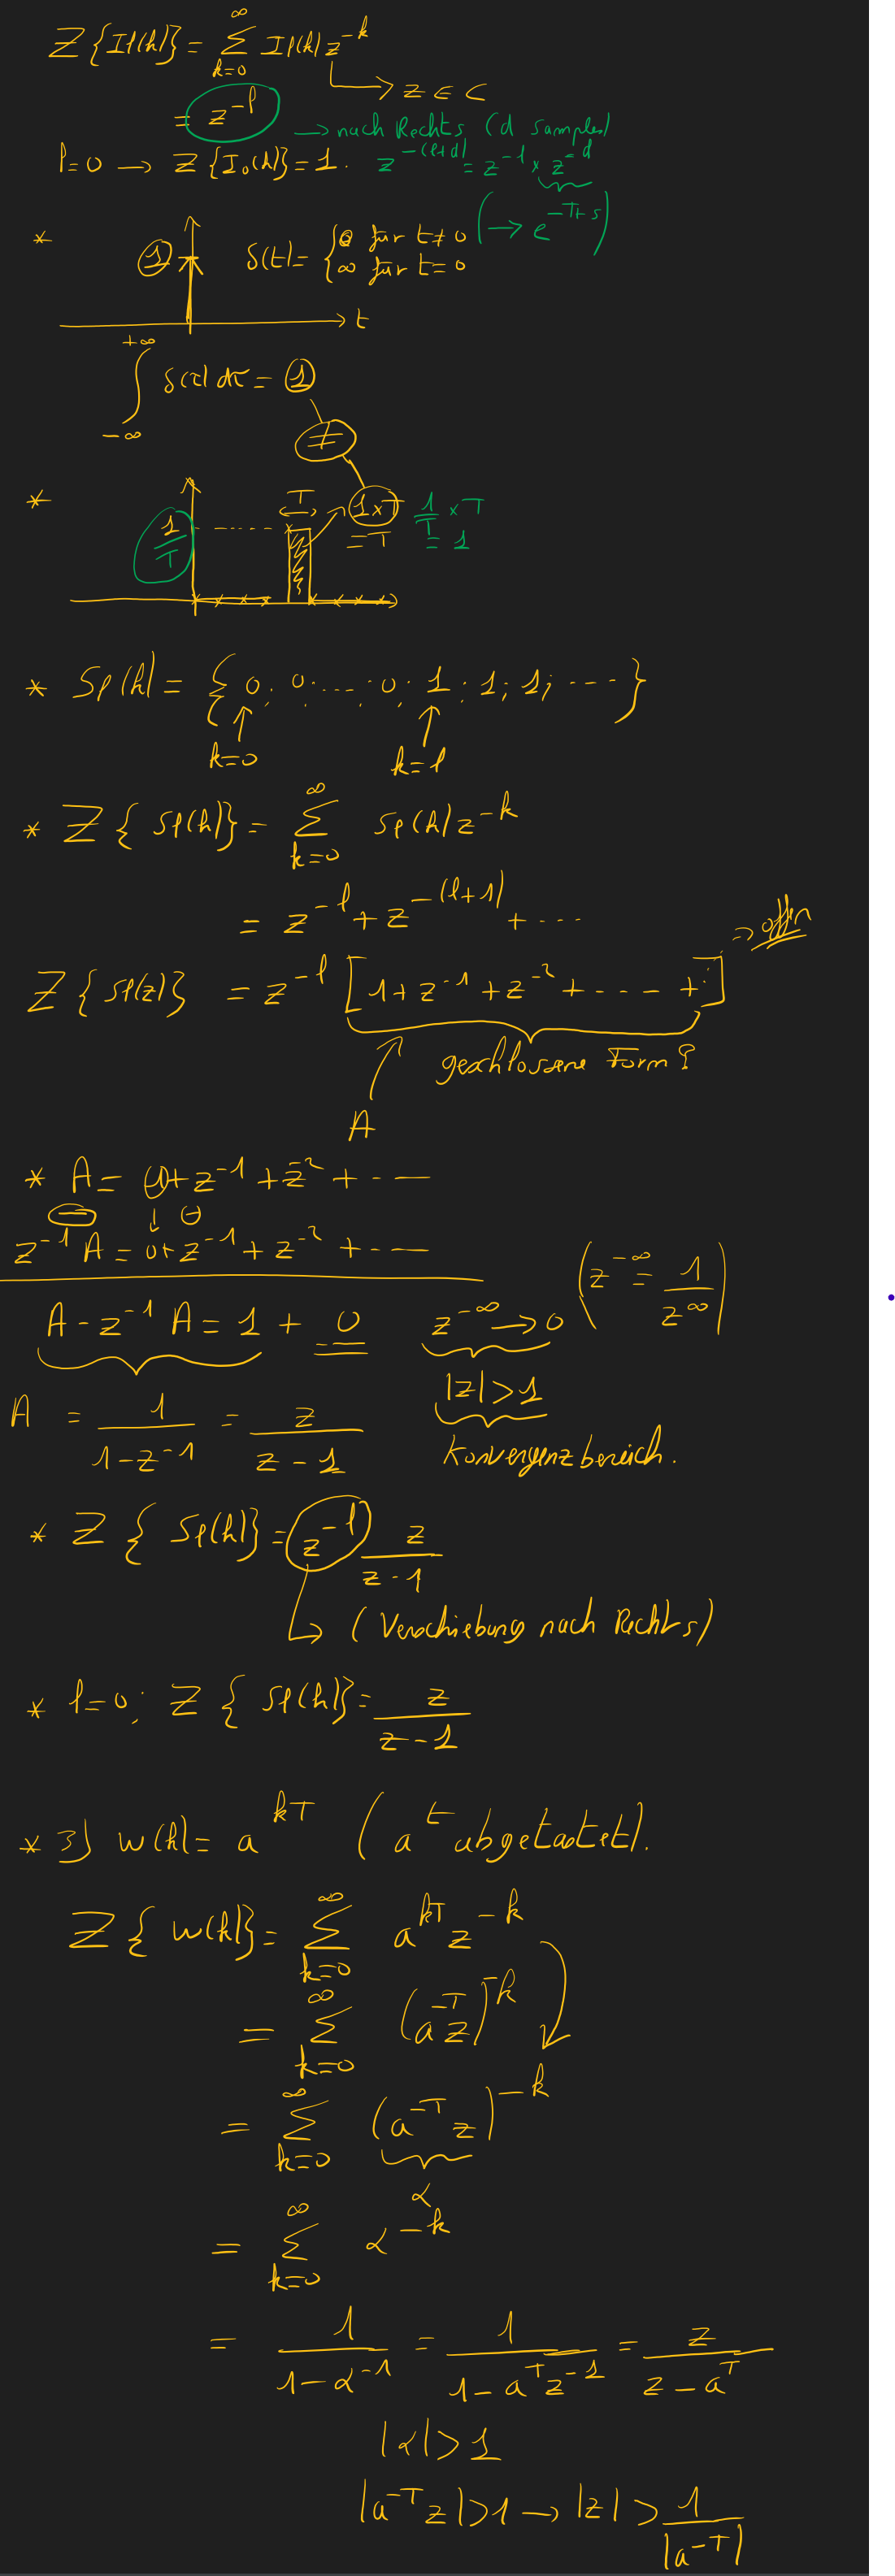 Z{Il(k)} = ∑_{k=0}^{∞} Il(k) z^{-k}
→ z ∈ C
= z^{-l}
→ nach Rechts (d samples)
l=0 → Z{I_0(k)} = 1. z^{-(l+d)} = z^{-l} × z^{-d}
(→ e^{-T_t s})
* ① δ(t) = { 0 für t≠0
∞ für t=0
t
∫_{-∞}^{+∞} δ(τ) dτ = ①
≠
* 1/T T 1×T = T 1/T × T = 1
* Sl(k) = { 0; 0; ....; 0; 1; 1; 1; ---- }
k=0 k=l
* Z{Sl(k)} = ∑_{k=0}^{∞} Sl(k) z^{-k}
= z^{-l} + z^{-(l+1)} + ----
→ offen
Z{Sl(z)} = z^{-l} [1 + z^{-1} + z^{-2} + ---- + ...]
geschlossene Form?
A
* A = 1 + z^{-1} + z^{-2} + ----
z^{-1} A = 0 + z^{-1} + z^{-2} + ----
(z^{-∞} = 1/z^{∞})
A - z^{-1} A = 1 + 0 z^{-∞} → 0
|z| > 1
A = 1/(1-z^{-1}) = z/(z-1) Konvergenzbereich.
* Z{Sl(k)} = z^{-l} z/(z-1)
→ (Verschiebung nach Rechts)
* l=0; Z{Sl(k)} = z/(z-1)
* 3) w(k) = a^{kT} (a^t abgetastet).
Z{w(k)} = ∑_{k=0}^{∞} a^{kT} z^{-k}
= ∑_{k=0}^{∞} (a^{-T} z)^{-k}
= ∑_{k=0}^{∞} (a^{-T} z)^{-k}
α
= ∑_{k=0}^{∞} α^{-k}
= 1/(1-α^{-1}) = 1/(1-a^T z^{-1}) = z/(z-a^T)
|α| > 1
|a^{-T} z| > 1 → |z| > 1/|a^{-T}|